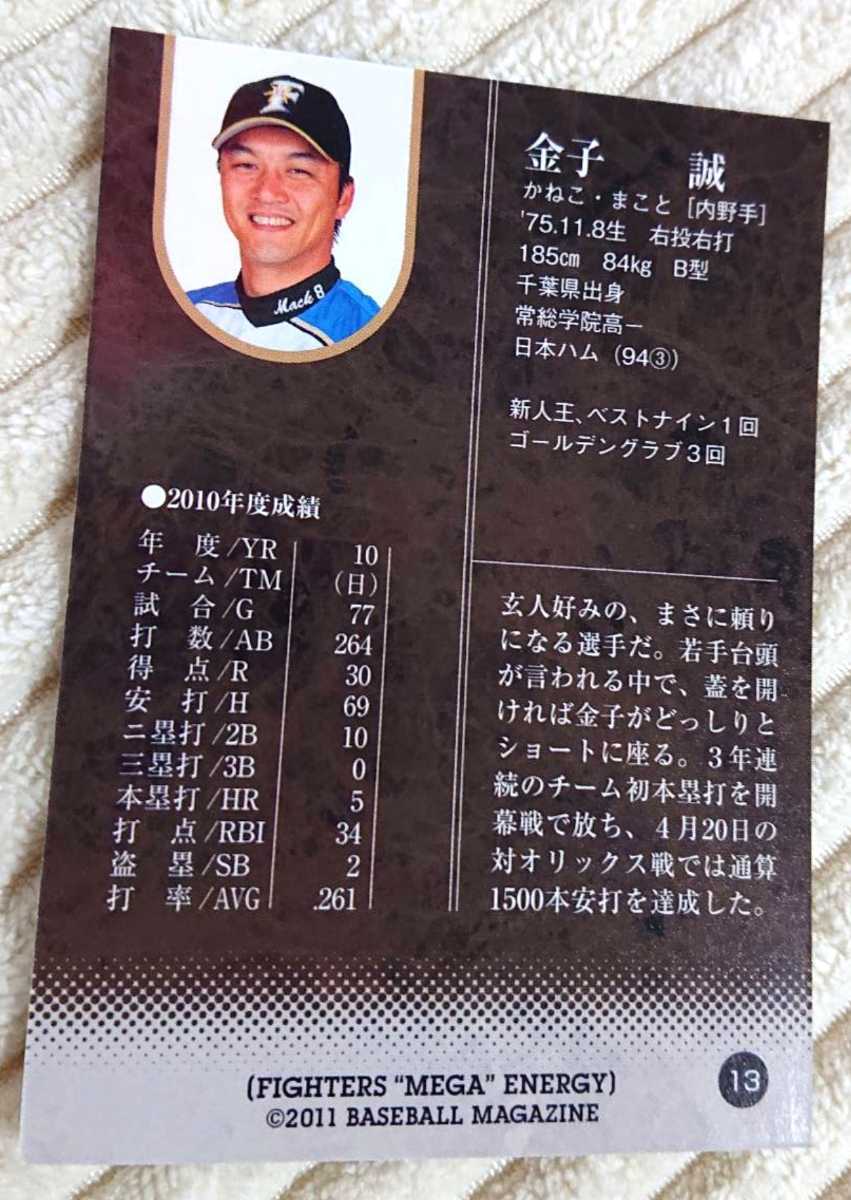 F
Mack 8
金子 誠
かねこ・まこと [内野手]
'75.11.8生 右投右打
185㎝ 84㎏ B型
千葉県出身
常総学院高ー
日本ハム (94③)
新人王、ベストナイン1回
ゴールデングラブ3回
●2010年度成績
年 度/YR 10
チーム/TM (日)
試 合/G 77
打 数/AB 264
得 点/R 30
安 打/H 69
二塁打/2B 10
三塁打/3B 0
本塁打/HR 5
打 点/RBI 34
盗 塁/SB 2
打 率/AVG .261
玄人好みの、まさに頼り
になる選手だ。若手台頭
が言われる中で、蓋を開
ければ金子がどっしりと
ショートに座る。3年連
続のチーム初本塁打を開
幕戦で放ち、4月20日の
対オリックス戦では通算
1500本安打を達成した。
(FIGHTERS “MEGA” ENERGY)
©2011 BASEBALL MAGAZINE
13